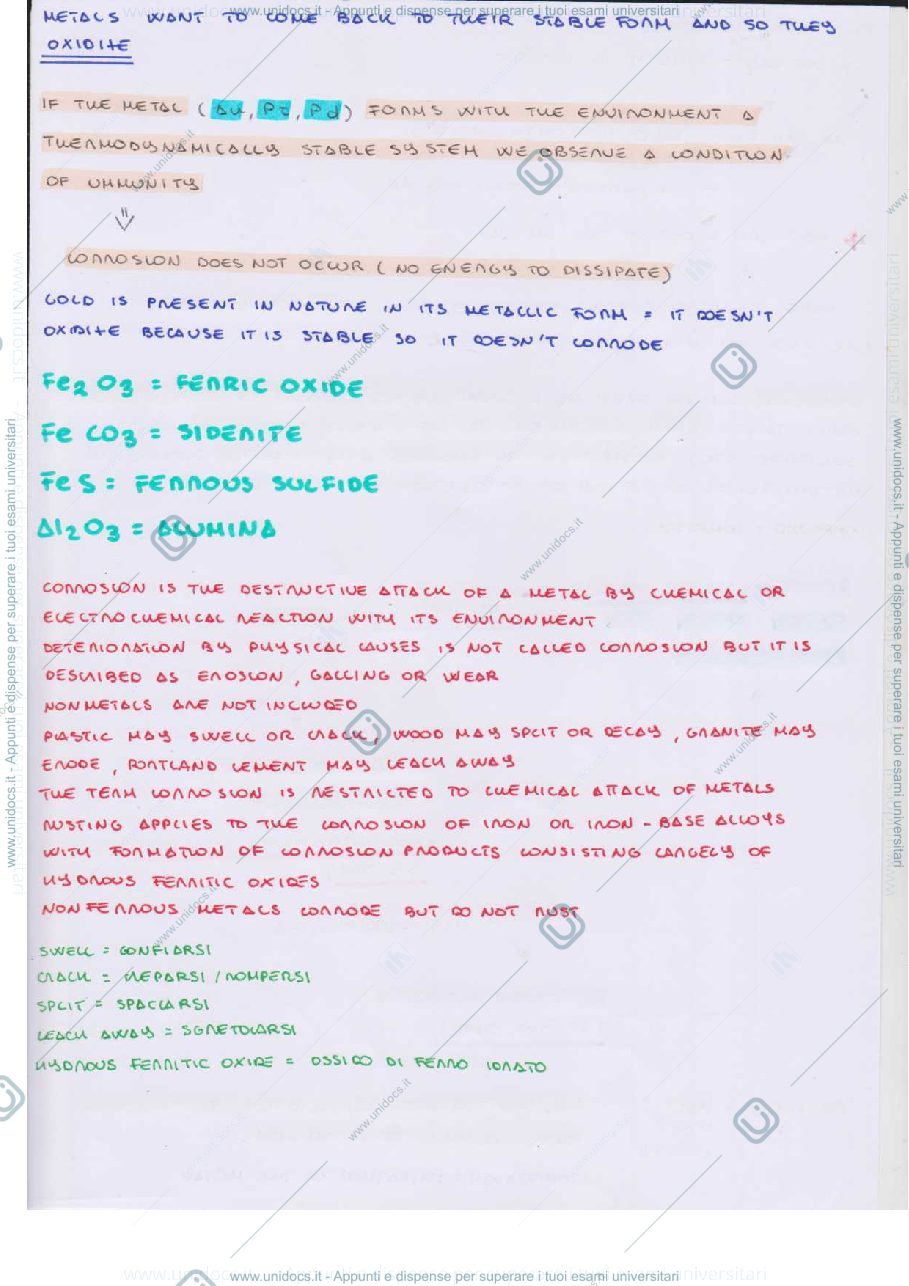 www.unidocs.it - Appunti e dispense per superare i tuoi esami universitari
METALS WANT TO COME BACK TO THEIR STABLE FORM AND SO THEY
OXIDIZE
IF THE METAL (Au, Pt, Pd) FORMS WITH THE ENVIRONMENT A
THERMODYNAMICALLY STABLE SYSTEM WE OBSERVE A CONDITION
OF IMMUNITY
⇓
CORROSION DOES NOT OCCUR (NO ENERGY TO DISSIPATE)
GOLD IS PRESENT IN NATURE IN ITS METALLIC FORM = IT DOESN'T
OXIDIZE BECAUSE IT IS STABLE SO IT DOESN'T CORRODE
Fe2O3 = FERRIC OXIDE
FeCO3 = SIDERITE
FeS = FERROUS SULFIDE
Al2O3 = ALUMINA
CORROSION IS THE DESTRUCTIVE ATTACK OF A METAL BY CHEMICAL OR
ELECTROCHEMICAL REACTION WITH ITS ENVIRONMENT
DETERIORATION BY PHYSICAL CAUSES IS NOT CALLED CORROSION BUT IT IS
DESCRIBED AS EROSION, GALLING OR WEAR
NONMETALS ARE NOT INCLUDED
PLASTIC MAY SWELL OR CRACK, WOOD MAY SPLIT OR DECAY, GRANITE MAY
ERODE, PORTLAND CEMENT MAY LEACH AWAY
THE TERM CORROSION IS RESTRICTED TO CHEMICAL ATTACK OF METALS
RUSTING APPLIES TO THE CORROSION OF IRON OR IRON-BASE ALLOYS
WITH FORMATION OF CORROSION PRODUCTS CONSISTING LARGELY OF
HYDROUS FERRITIC OXIDES
NONFERROUS METALS CORRODE BUT DO NOT RUST
SWELL = GONFIARSI
CRACK = CREPARSI / ROMPERSI
SPLIT = SPACCARSI
LEACH AWAY = SGRETOLARSI
HYDROUS FERRITIC OXIDE = OSSIDO DI FERRO IDRATO
www.unidocs.it - Appunti e dispense per superare i tuoi esami universitari
www.unidocs.it - Appunti e dispense per superare i tuoi esami universitari
www.unidocs.it - Appunti e dispense per superare i tuoi esami universitari